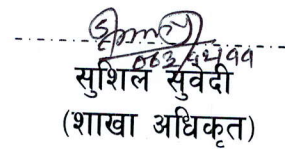 सुशिल सुवेदी
(शाखा अधिकृत)